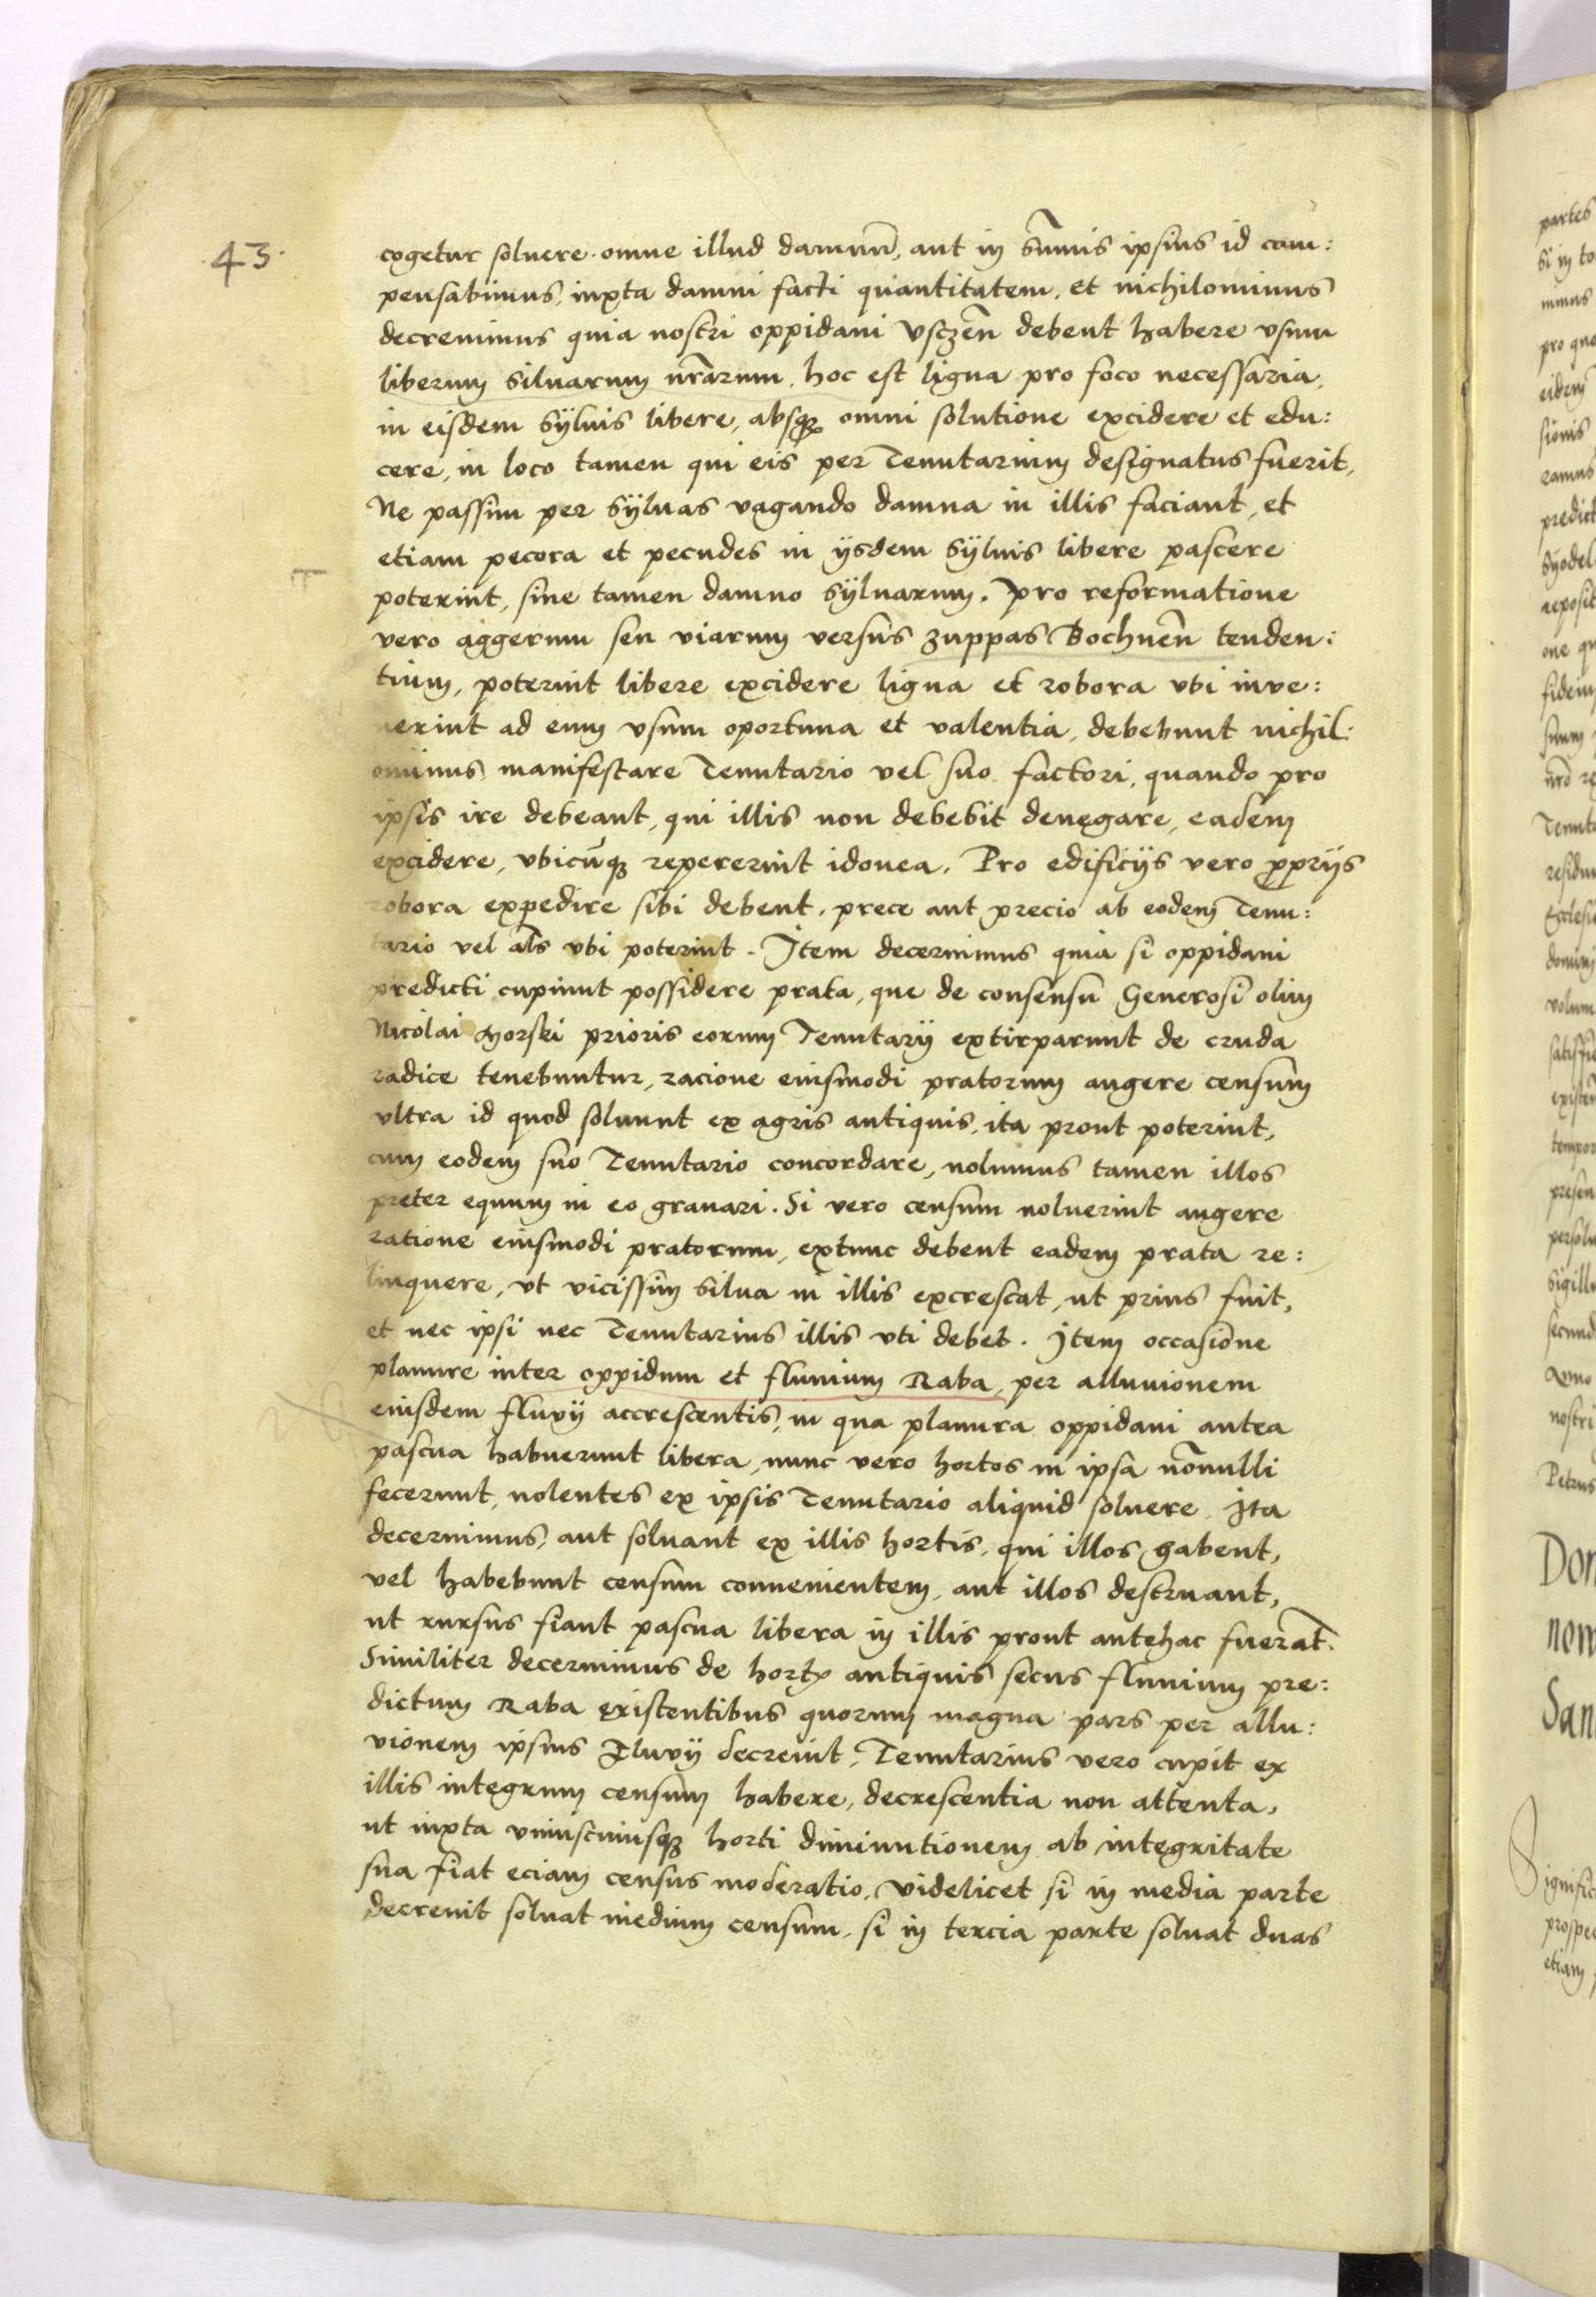 43.
cogetur soluere omne illud damnũ, aut in sum̃is ipsius id com:
pensabimus, iuxta damni facti quantitatem, et nichilominus
decreuimus quia nostri oppidani Vsczeñ debent habere vsum
liberum siluarum nrãrum, hoc est ligna pro foco necessaria,
in eisdem syluis libere, absqꝫ omni solutione excidere et edu:
cere, in loco tamen qui eis per Tenutarium designatus fuerit,
Ne passim per syluas vagando damna in illis faciant, et
etiam pecora et pecudes in ijsdem syluis libere pascere
poterint, sine tamen damno syluarum. Pro reformatione
vero aggerum seu viarum versus zuppas Bochneñ tenden:
tium, poterint libere excidere ligna et robora vbi inve:
nerint ad eum vsum oportuna et valentia, debebunt nichil:
ominus manifestare Tenutario vel suo factori, quando pro
ipsis ire debeant, qui illis non debebit denegare, eadem
excidere, vbicũqꝫ repererint idonea. Pro edificijs vero ꝓprijs
robora expedire sibi debent, prece aut precio ab eodem Tenu:
tario vel als̃ vbi poterint. Item decernimus quia si oppidani
predicti cupiunt possidere prata, que de consensu Generosi olim
Nicolai Morski prioris eorum Tenutarij extirparunt de cruda
radice tenebuntur, racione eiusmodi pratorum augere censum
vltra id quod soluunt ex agris antiquis, ita prout poterint,
cum eodem suo Tenutario concordare, nolumus tamen illos
preter equum in eo grauari. Si vero censum noluerint augere
ratione eiusmodi pratorum, extunc debent eadem prata re:
linquere, vt vicissim silua in illis excrescat, ut prius fuit,
et nec ipsi nec Tenutarius illis vti debet. Item occasione
planure inter oppidum et fluuium Raba, per alluuionem
eiusdem fluvij accrescentis, in qua planura oppidani antea
pascua habuerunt libera, nunc vero hortos in ipsa nõnulli
fecerunt, nolentes ex ipsis Tenutario aliquid soluere, Ita
decernimus, aut soluant ex illis hortis, qui illos habent,
vel habebunt censum conuenientem, aut illos destruant,
ut rursus fiant pascua libera in illis prout antehac fuerãt.
Similiter decernimus de hortꝭ antiquis secus fluuium pre:
dictum Raba existentibus quorum magna pars per allu:
vionem ipsius Fluvij decreuit, Tenutarius vero cupit ex
illis integrum censum habere, decrescentia non attenta,
ut iuxta vniuscuiusqꝫ horti diminutionem ab integritate
sua fiat eciam census moderatio, videlicet si in media parte
decreuit soluat medium censum, si in tercia parte soluat duas